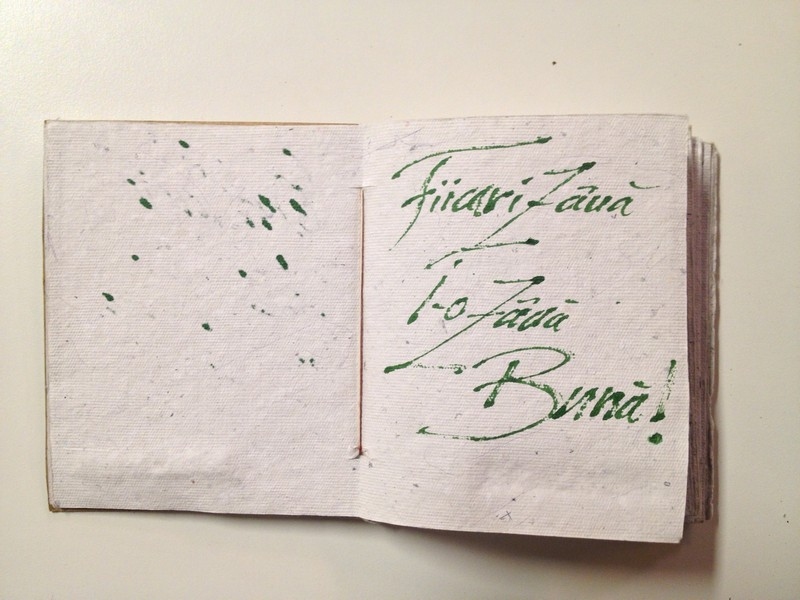 Fiicari Zâuă
I-o Zâuă
Bună!